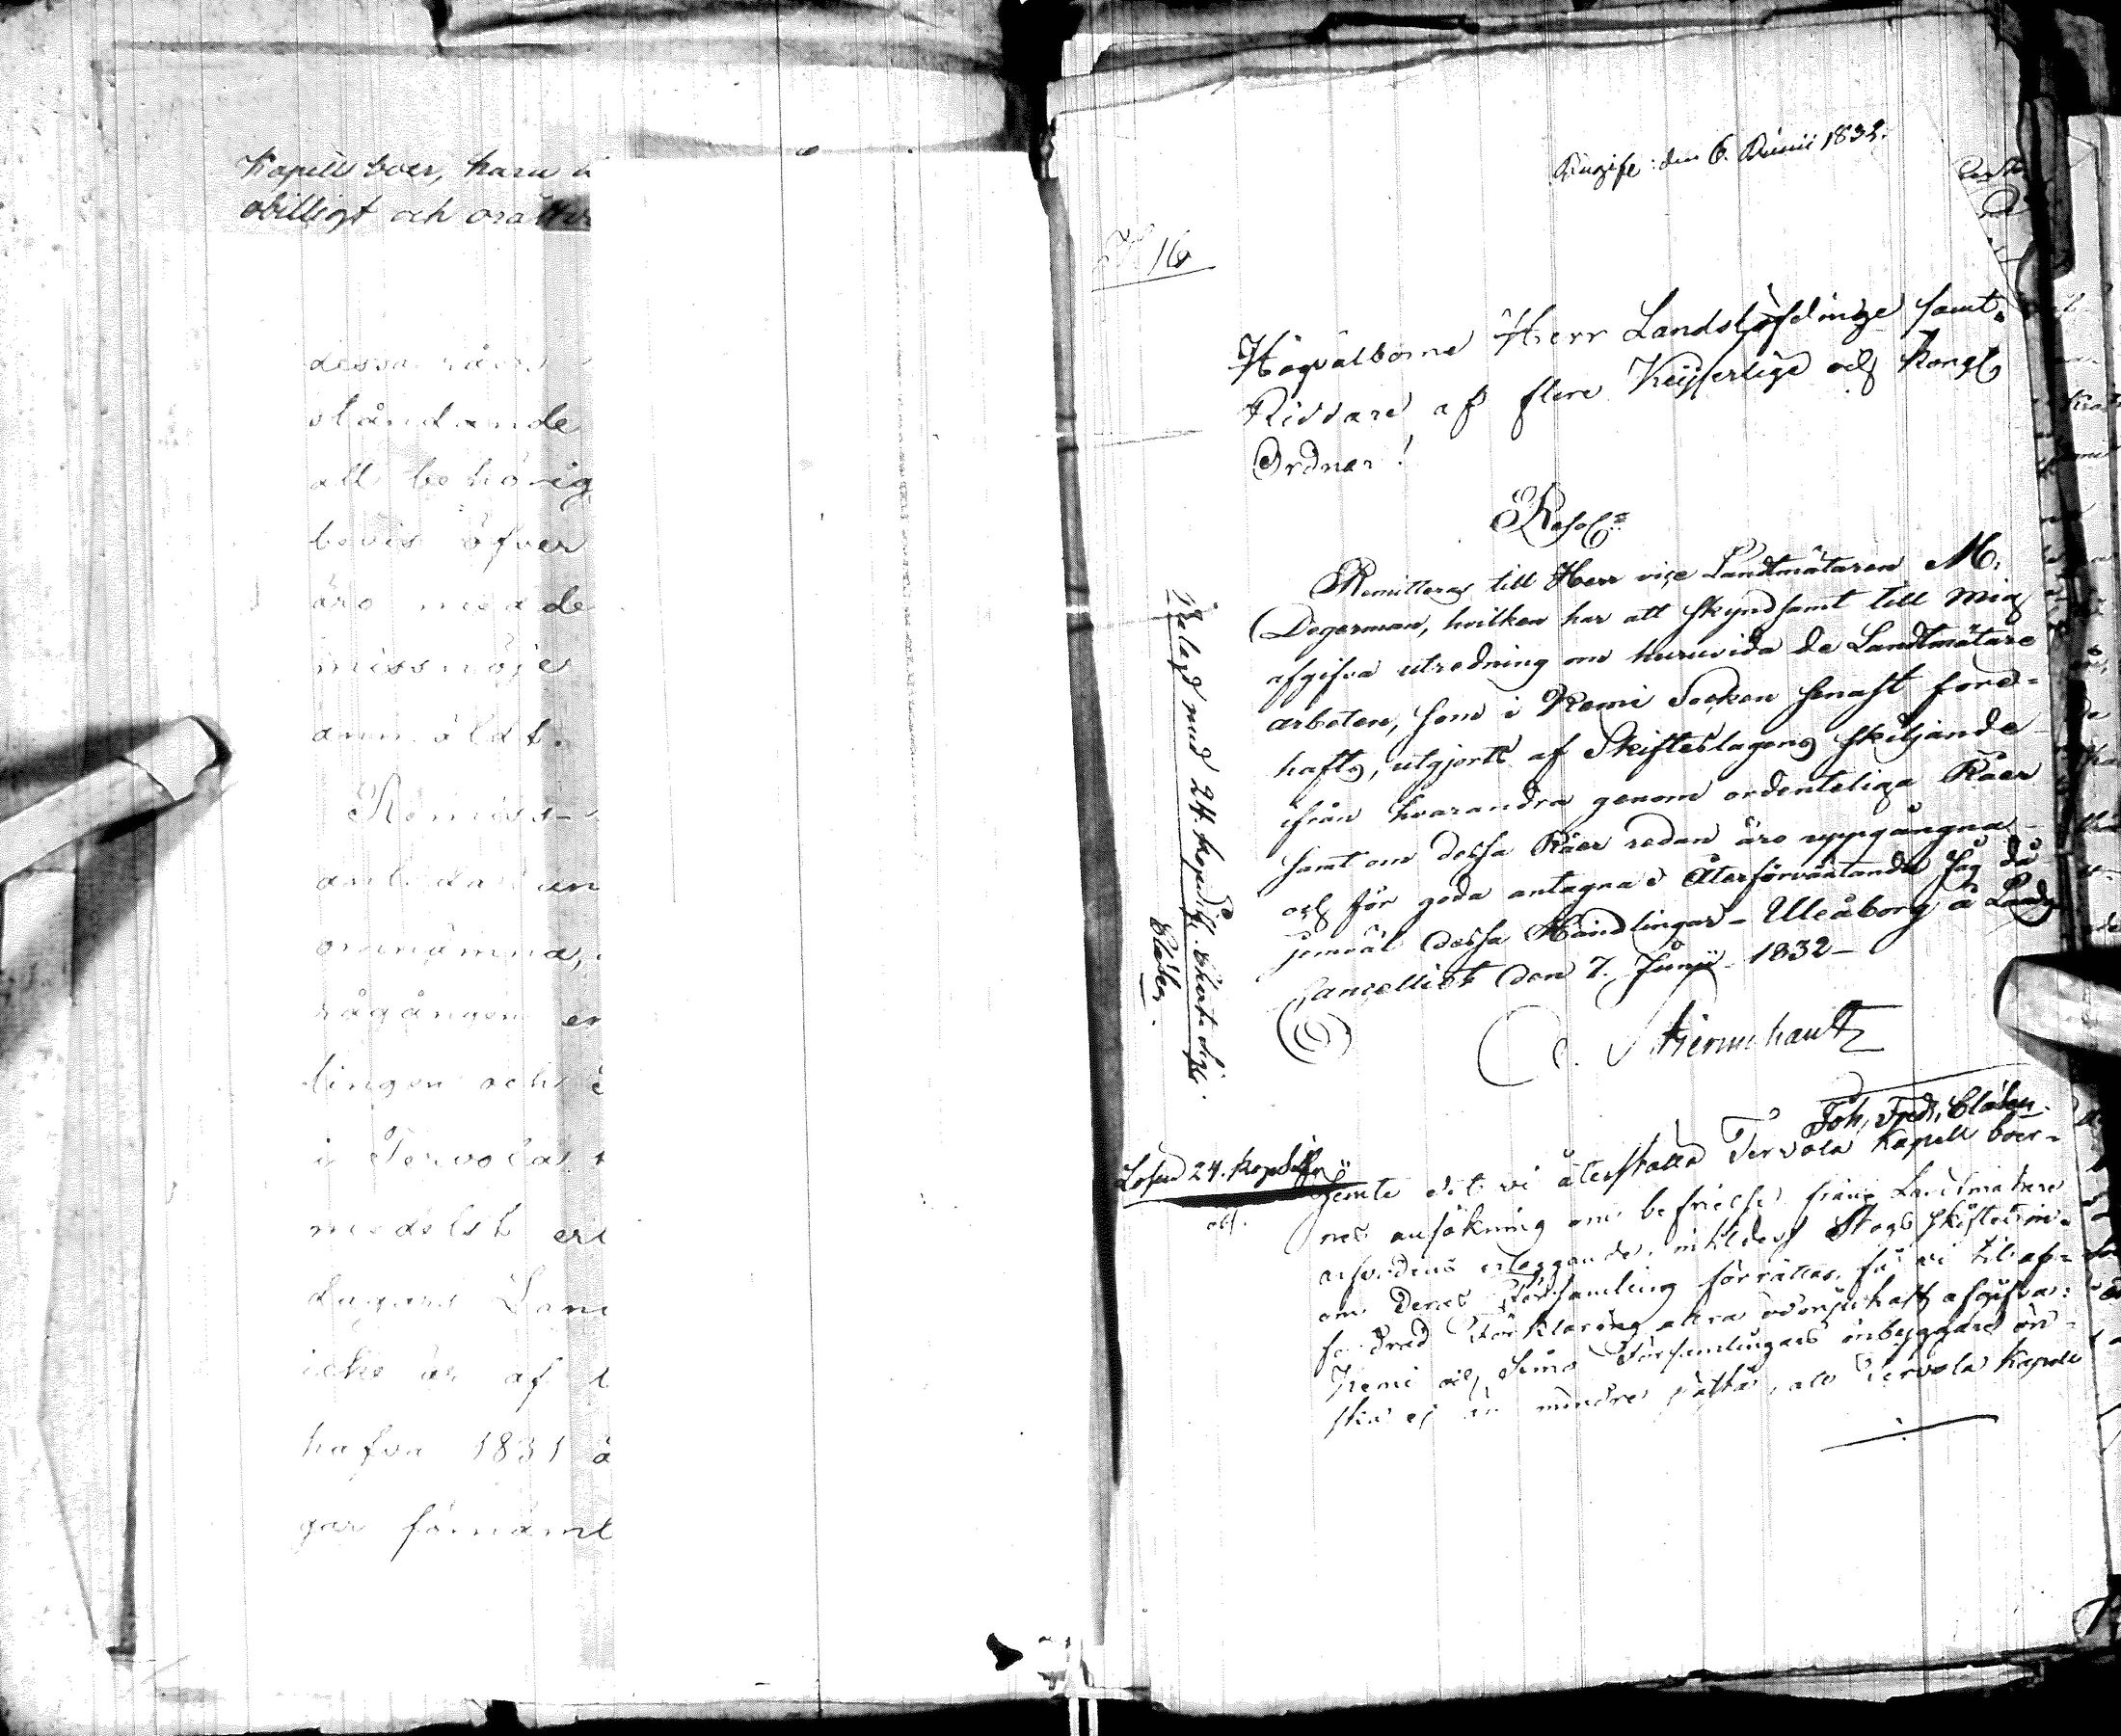 Kapell boer, harn
obilligt och orättv
dessa råers
stående
all behörig
bevis öfver
äro medde
missnöje
anmäldt.
Remiss-
omnämna,
rågången
lingen och
i Tervola
medelst
dugars
icke är af
hafva 1831 å
gar förnäml
Ingife: den 6. Junii 1832.
16
Högvälborne Herr Landshöfdinge samt
Riddare af flere Keijserlige och Kongl.
Ordnar!
Resol:
Remitteras till Herr vice Landtmätaren M.
Degerman, hvilken har att skyndsamt till mig
afgifva utredning om huruvida de Landtmätare
arbeten, som i Kemi Socken senast före-
hafts, utgjorts af Skifteslagens skiljande
ifrån hvarandra genom ordenteliga Råer
samt om dessa Råer redan äro uppgångna
och för goda antagna, Återförväntandes jag då
jemväl dessa Handlingar – Uleåborg å Lands
Cancelliet den 7. Junii 1832 –
Stjernschantz
Joh. Fredr. Clasen
Belagd med 24. kop. Charta
Clasen.
Lösen 24. kop. Silfr
Jemte det vi återställa Tervola Kapell boer-
nes ansökning om befrielse från Landtmätare
arfvodens erläggande, intilldess Storskiftet in-
om deras Församling förrättas, få vi till
fordrad Förklaring allra ödmjukast afgifva:
Kemi och Simo Församlingars inbyggare ön-
ska ej än mindre påstå, att Tervola Kapell